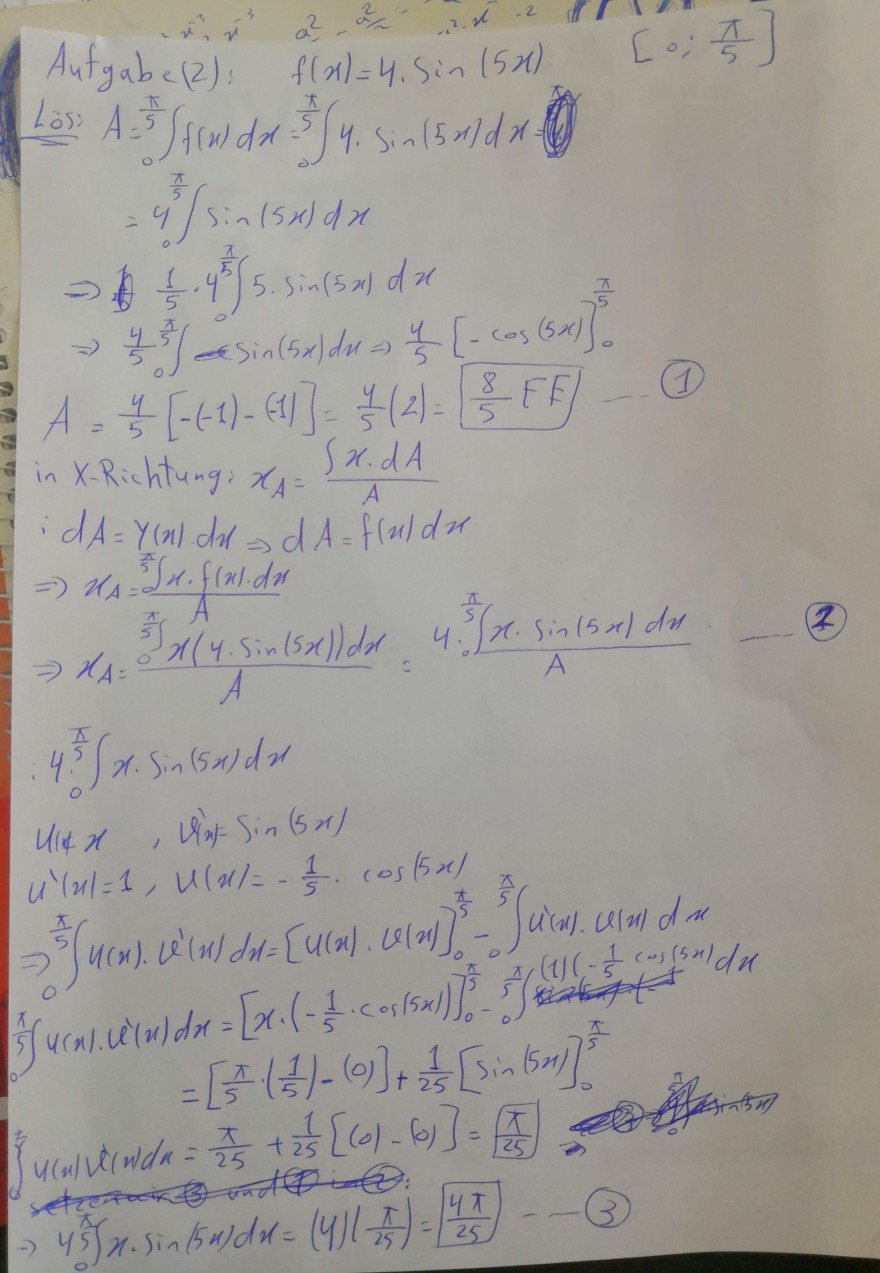 Aufgabe(2): f(x)=4.sin(5x) [0; π/5]
Lös: A = ₀^{π/5}∫ f(x) dx = ₀^{π/5}∫ 4. sin(5x) dx =
= 4 ₀^{π/5}∫ sin(5x) dx
⇒ 1/5 . 4 ₀^{π/5}∫ 5. sin(5x) dx
⇒ 4/5 ₀^{π/5}∫ sin(5x) dx ⇒ 4/5 [- cos(5x)]₀^{π/5}
A = 4/5 [-(-1) - (-1)] = 4/5 (2) = 8/5 FE --- ①
in X-Richtung: x_A = ∫x.dA / A
: dA = y(x).dx ⇒ dA = f(x) dx
⇒ x_A = ₀^{π/5}∫ x. f(x). dx / A
⇒ x_A = ₀^{π/5}∫ x(4. sin(5x)) dx / A = 4. ₀^{π/5}∫ x. sin(5x) dx / A --- ②
: 4. ₀^{π/5}∫ x. sin(5x) dx
u(x)= x , v'(x)= sin(5x)
u'(x)=1 , v(x)= - 1/5 . cos(5x)
⇒ ₀^{π/5}∫ u(x). v'(x) dx = [u(x). v(x)]₀^{π/5} - ₀^{π/5}∫ u'(x). v(x) dx
₀^{π/5}∫ u(x). v'(x) dx = [x.(- 1/5 . cos(5x))]₀^{π/5} - ₀^{π/5}∫ (1)(- 1/5 cos(5x) dx
= [π/5 .(1/5) - (0)] + 1/25 [sin(5x)]₀^{π/5}
∫ u(x) v'(x) dx = π/25 + 1/25 [(0) - (0)] = π/25 ⇒
setzen wir ③ und ① in ②:
⇒ 4 ₀^{π/5}∫ x. sin(5x) dx = (4)(π/25) = 4π/25 --- ③